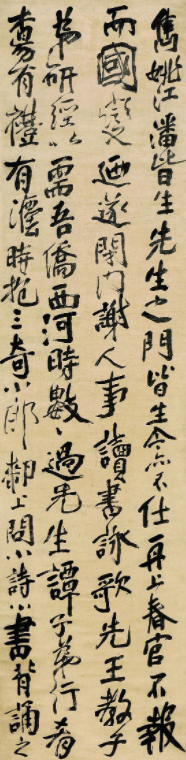 雋姚江潘皆生先生之門皆生念亦不仕再上春官不報
而國變迺遂閉門謝人事讀書詠歌先王教子
弟研經以需吾僑西河時數〻過先生譚子弟行
有禮有灋時抱三奇小郎厀上問小詩小書背誦之